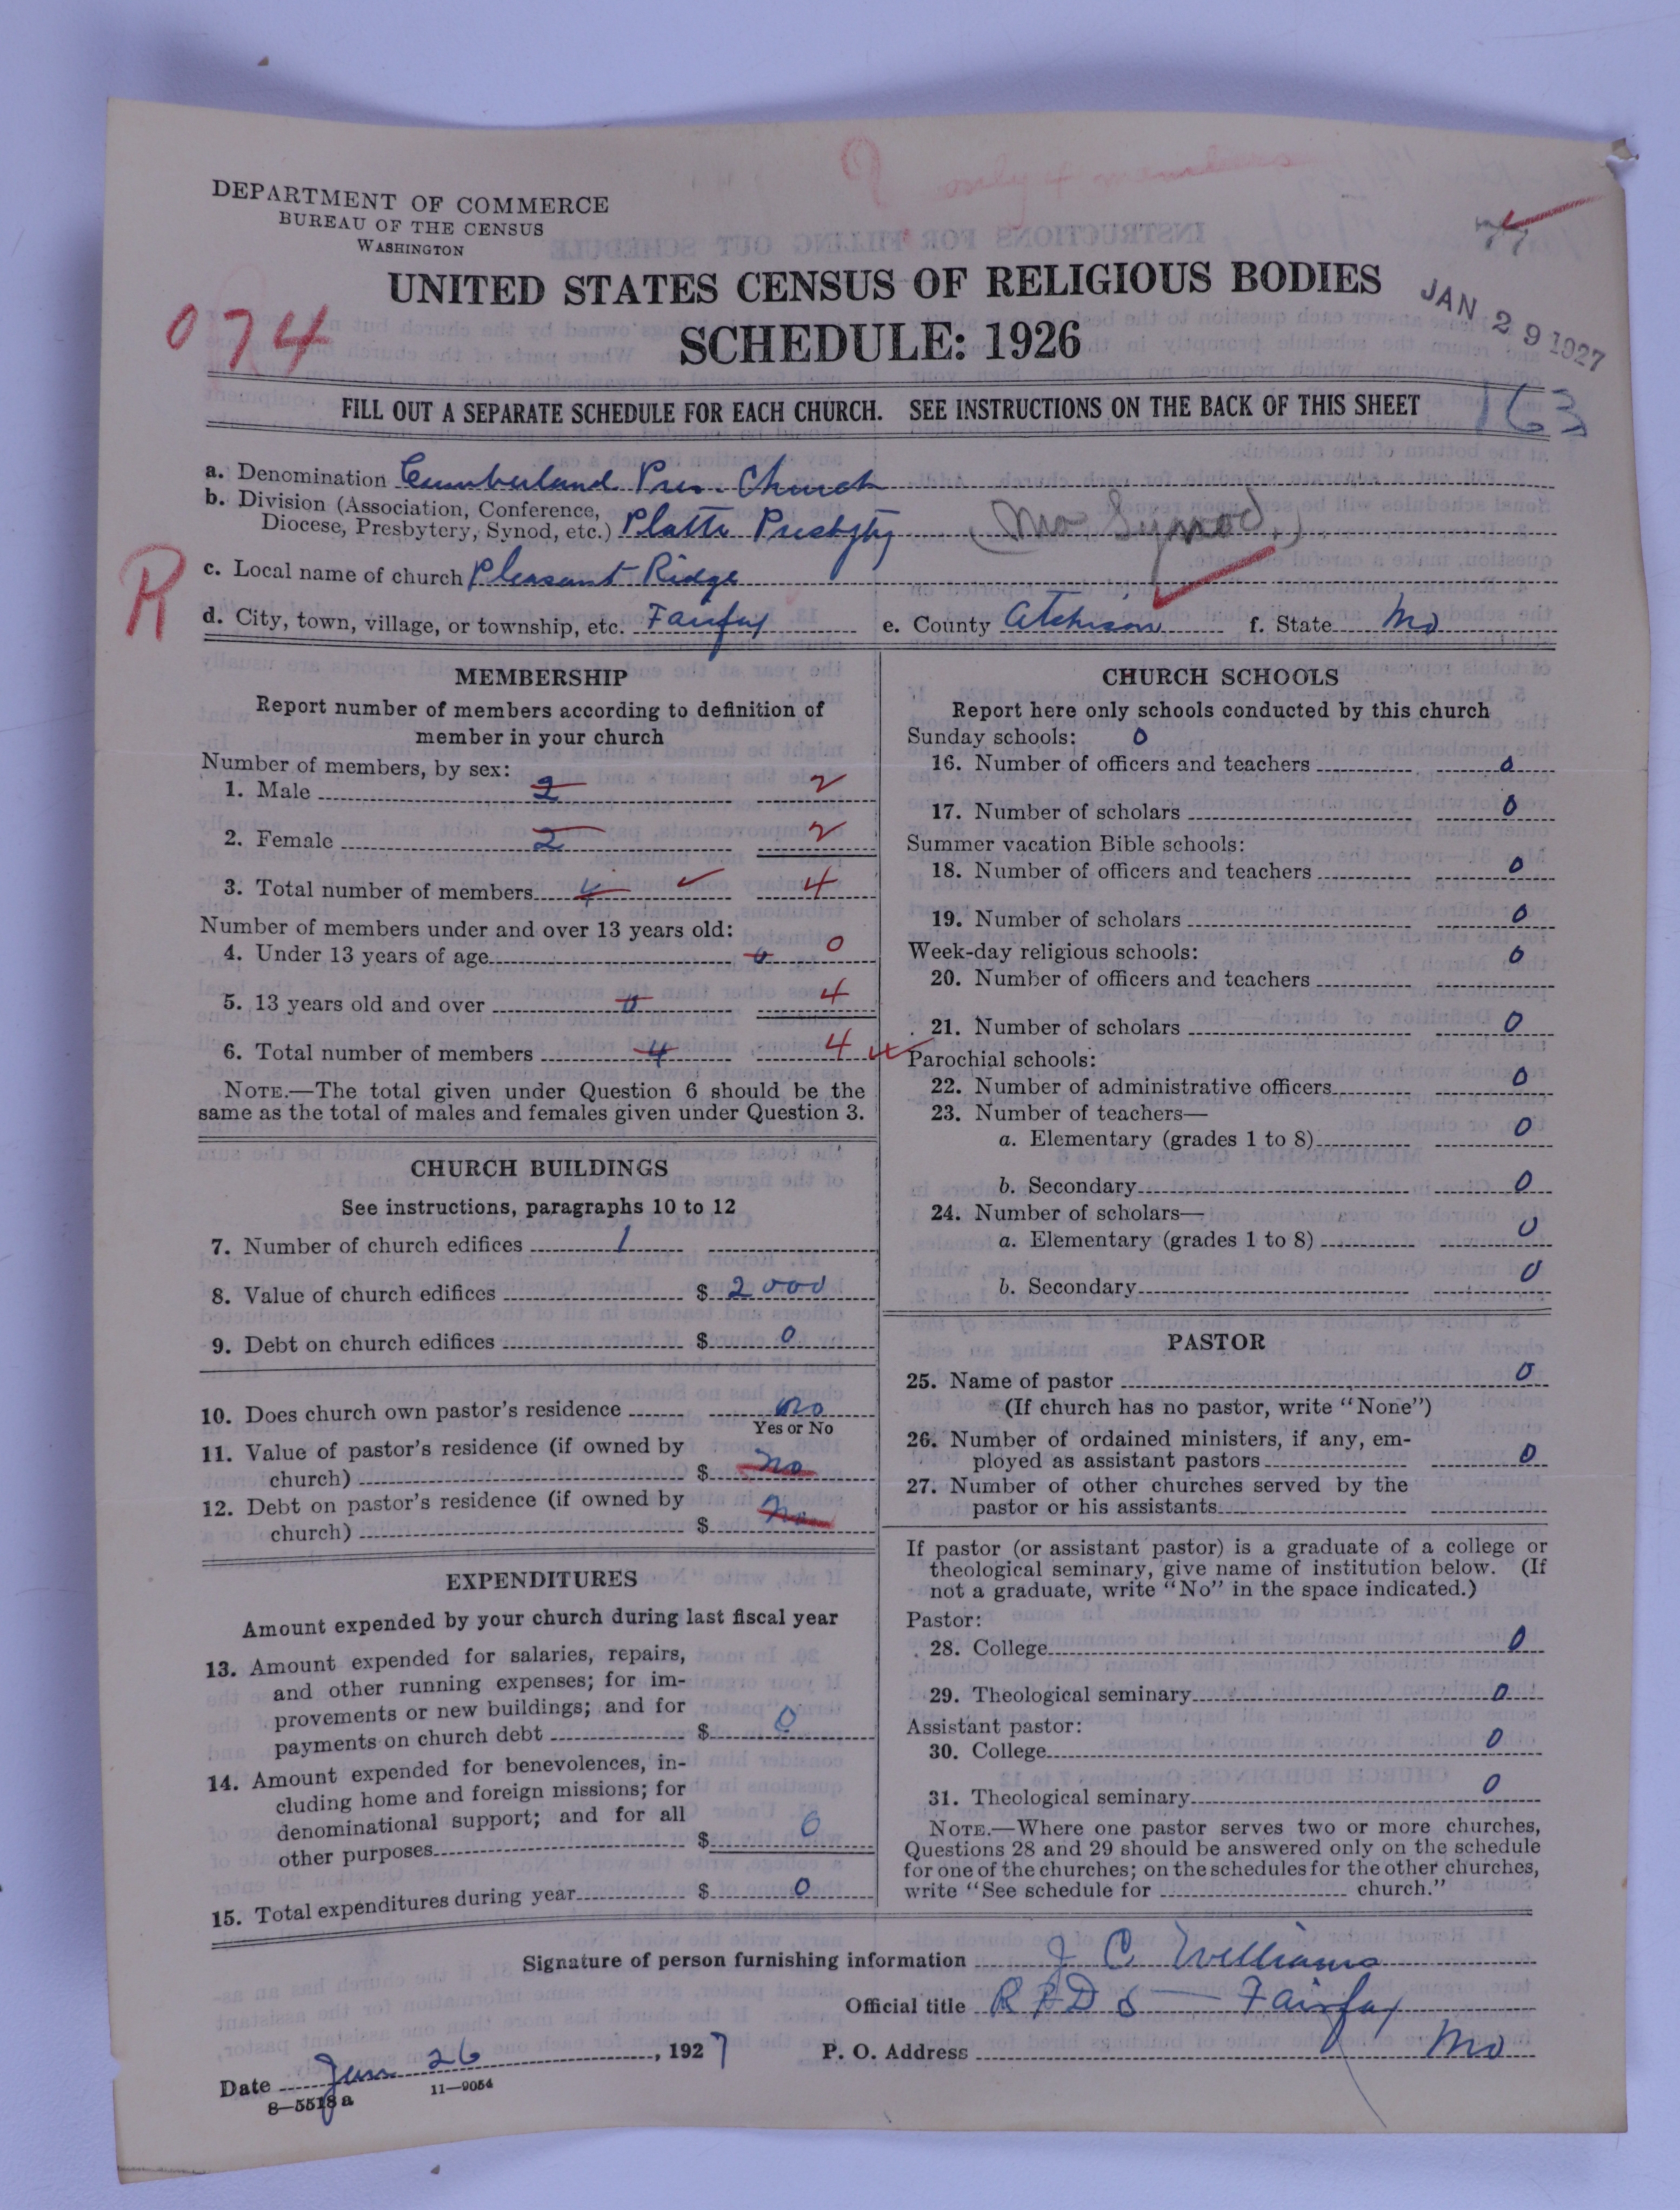 only 4 members
DEPARTMENT OF COMMERCE
BUREAU OF THE CENSUS
WASHINGTON
UNITED STATES CENSUS OF RELIGIOUS BODIES
SCHEDULE: 1926
074
JAN 29 1927
FILL OUT A SEPARATE SCHEDULE FOR EACH CHURCH. SEE INSTRUCTIONS ON THE BACK OF THIS SHEET
163
a. Denomination Cumberland Pres. Church
b. Division (Association, Conference,
Diocese, Presbytery, Synod, etc.) Platte Presbyty (Mo Synod.)
R
c. Local name of church Pleasant Ridge
d. City, town, village, or township, etc. Fairfax e. County Atchison f. State Mo
MEMBERSHIP
Report number of members according to definition of
member in your church
Number of members, by sex:
1. Male 2 2
2. Female 2 2
3. Total number of members 4 4
Number of members under and over 13 years old:
4. Under 13 years of age 0 0
5. 13 years old and over 0 4
6. Total number of members 4 4
NOTE.—The total given under Question 6 should be the
same as the total of males and females given under Question 3.
CHURCH BUILDINGS
See instructions, paragraphs 10 to 12
7. Number of church edifices 1
8. Value of church edifices $ 2000
9. Debt on church edifices $ 0
10. Does church own pastor's residence No
Yes or No
11. Value of pastor's residence (if owned by
church) $ No
12. Debt on pastor's residence (if owned by
church) $ No
EXPENDITURES
Amount expended by your church during last fiscal year
13. Amount expended for salaries, repairs,
and other running expenses; for im-
provements or new buildings; and for
payments on church debt $ 0
14. Amount expended for benevolences, in-
cluding home and foreign missions; for
denominational support; and for all
other purposes $ 0
15. Total expenditures during year $ 0
CHURCH SCHOOLS
Report here only schools conducted by this church
Sunday schools: 0
16. Number of officers and teachers 0
17. Number of scholars 0
Summer vacation Bible schools:
18. Number of officers and teachers 0
19. Number of scholars 0
Week-day religious schools: 0
20. Number of officers and teachers
21. Number of scholars 0
Parochial schools:
22. Number of administrative officers 0
23. Number of teachers—
a. Elementary (grades 1 to 8) 0
b. Secondary 0
24. Number of scholars—
a. Elementary (grades 1 to 8) 0
b. Secondary 0
PASTOR
25. Name of pastor 0
(If church has no pastor, write "None")
26. Number of ordained ministers, if any, em-
ployed as assistant pastors 0
27. Number of other churches served by the
pastor or his assistants
If pastor (or assistant pastor) is a graduate of a college or
theological seminary, give name of institution below. (If
not a graduate, write "No" in the space indicated.)
Pastor:
28. College 0
29. Theological seminary 0
Assistant pastor:
30. College 0
31. Theological seminary 0
NOTE.—Where one pastor serves two or more churches,
Questions 28 and 29 should be answered only on the schedule
for one of the churches; on the schedules for the other churches,
write "See schedule for church."
Signature of person furnishing information J C Williams
Official title Fairfax
Date Jan 26, 1927 P. O. Address Mo
8—5518 a 11—9054